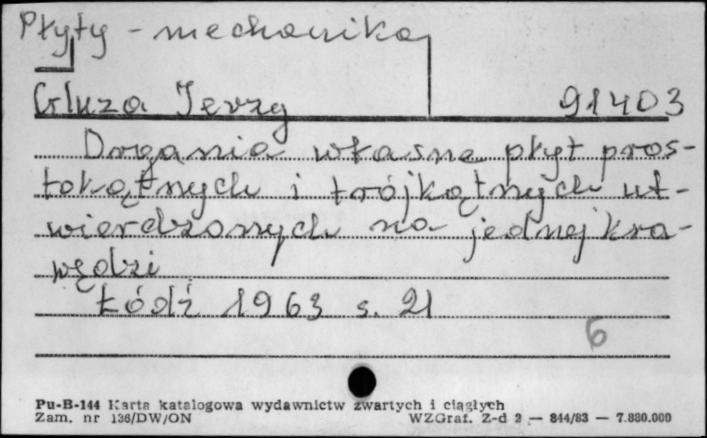 Płyty - mechanika
Gluza Jerzy 91403
Drgania własne płyt pros-
tokątnych i trójkątnych ut-
wierdzonych na jednej kra-
wędzi
Łódź 1963 s. 21
6
Pu-B-144 Karta katalogowa wydawnictw zwartych i ciągłych
Zam. nr 136/DW/ON WZGraf. Z-d 2 — 844/83 — 7.880.000